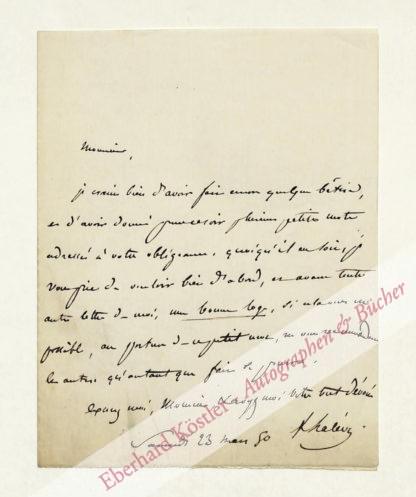 Monsieur,
je crains bien d'avoir fait encore quelque bêtise,
et d'avoir donné pour ce soir plusieurs petites mots
adressés à votre obligeance, quoiqu'il en soit, je
vous prie de vouloir bien d'abord, et avant toute
autre lettre de moi, une bonne loge, si cela vous est
possible, au porteur de ce petit mot, ne vous recommandant
les autres qu'autant que faire se pourra.
Excusez moi, Monsieur & croyez moi votre tout dévoué
Samedi 23 mars 50 FHalévy
Eberhard Köstler - Autographen & Bücher